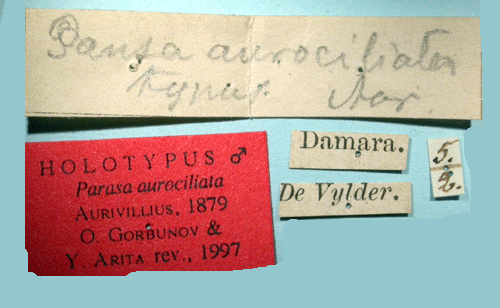 Parasa aurociliata
typus. Aur.
HOLOTYPUS ♂
Parasa aurociliata
AURIVILLIUS, 1879
O. GORBUNOV &
Y. ARITA rev., 1997
Damara.
De Vylder.
5.
2.